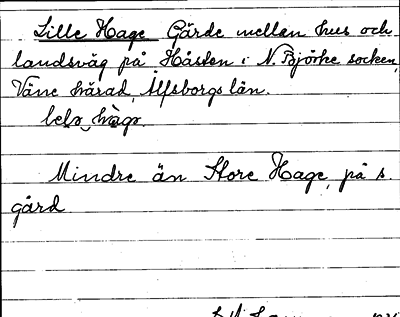 Lille Hage Gärde mellan hus och
landsväg på Håsten i N. Björke socken,
Väne härad, Älfsborgs län.
Mindre än Store Hage, på s.
gård.